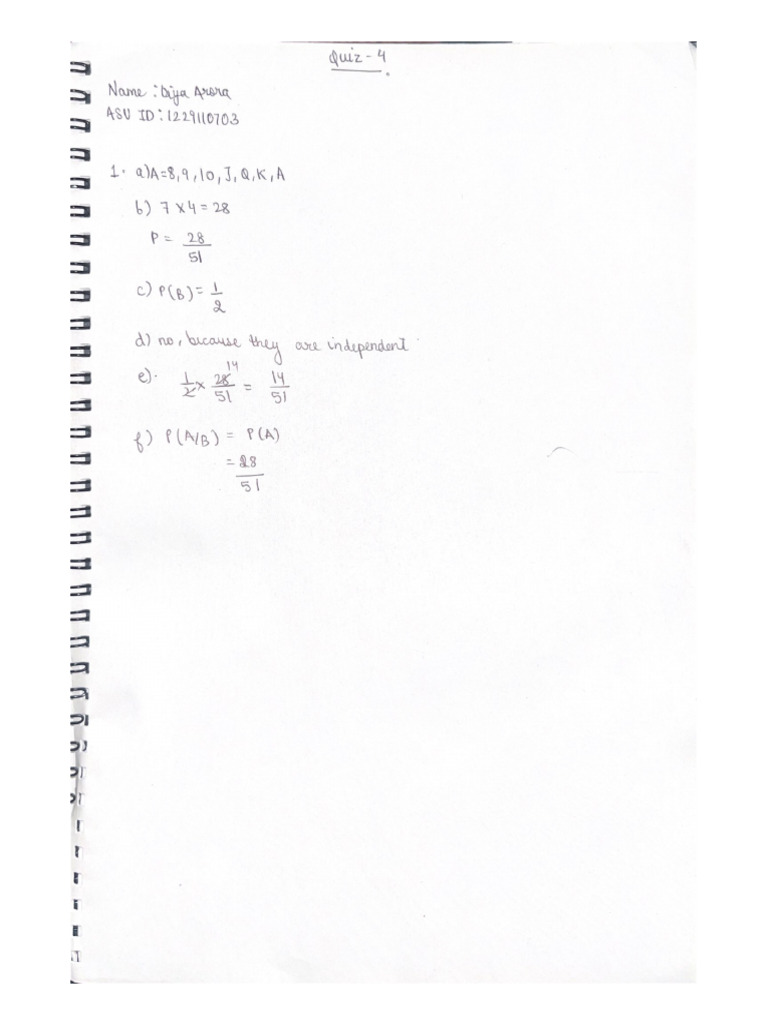 Quiz-4
Name : Diya Arora
ASU ID : 1229110703
1. a) A = 8, 9, 10, J, Q, K, A
b) 7 x 4 = 28
P = 28/51
c) P(B) = 1/2
d) no, because they are independent
e). 1/2 x 28/51 = 14/51
14
f) P(A/B) = P(A)
= 28/51